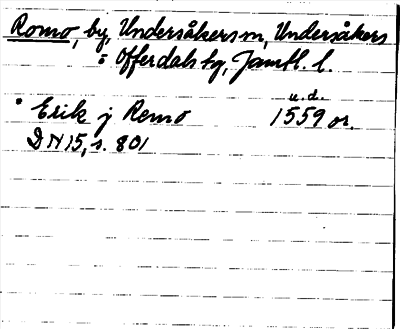 Romo, by, Undersåkers sn, Undersåkers
o Offerdals tg, Jämtl. l.
u.d.
* Erik j Remo 1559 or.
DN 15, s. 801